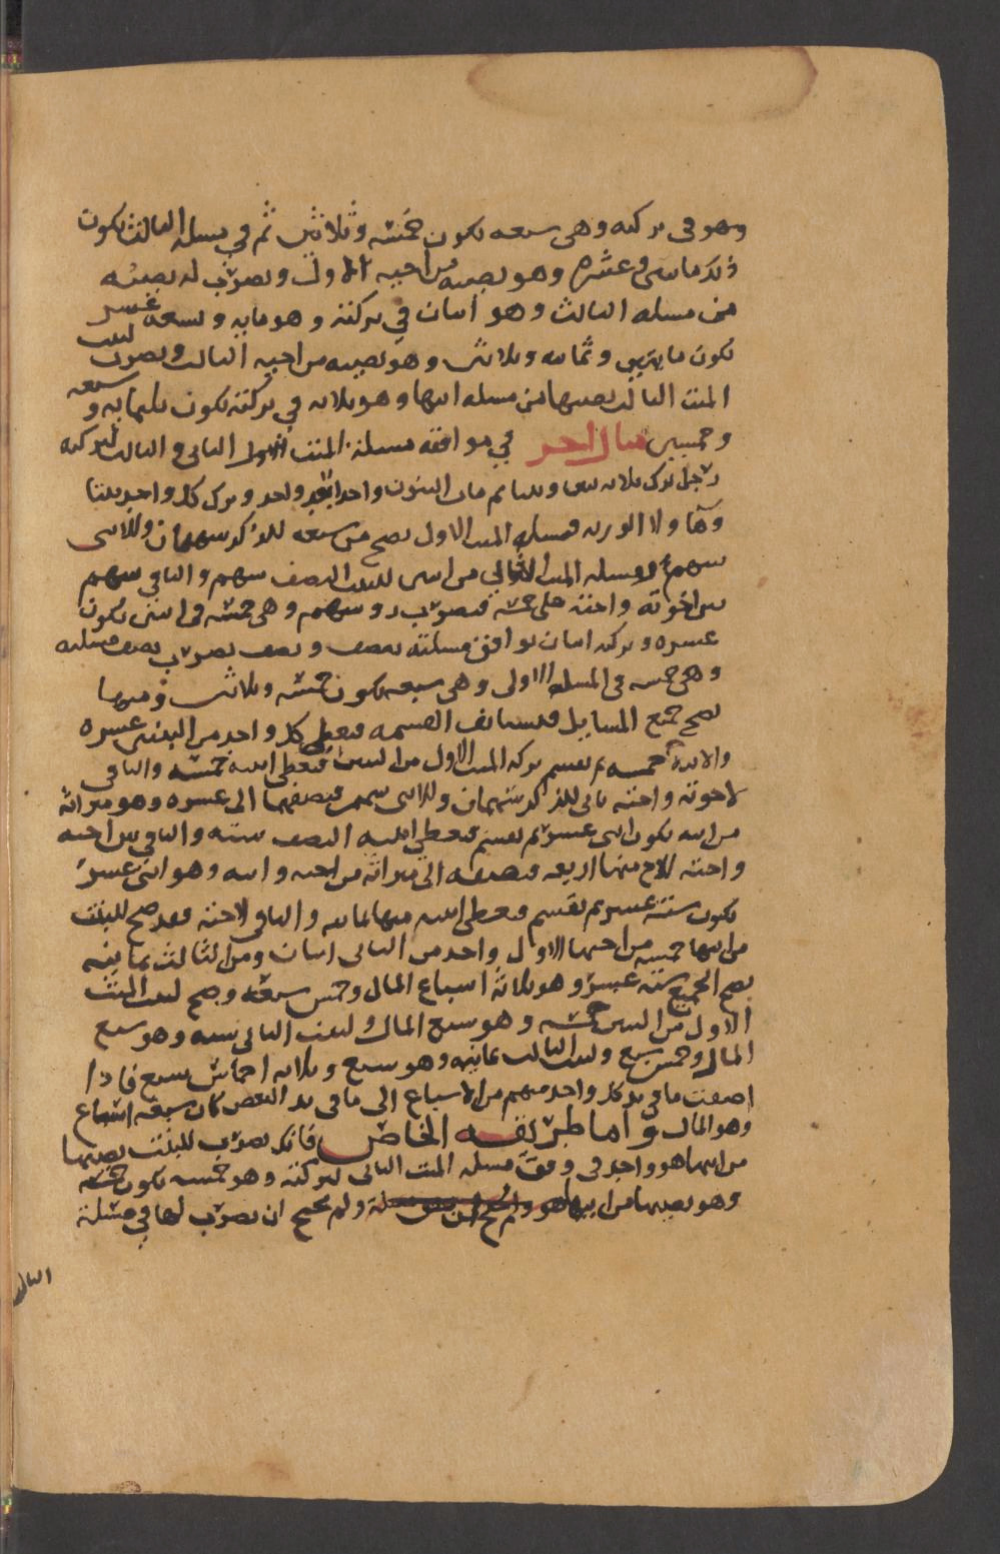 وهو في تركته وهي سبعه تكون خمسه وثلاثين ثم في مسله الثالث تكون
ذلك مايتي وعشره وهو نصيبه من اخيه الاول وتضرب له نصيبه
من مسله الثالث وهو اثنان في تركته وهو مايه وتسعه عشر
تكون مايتين وثمانيه وثلاثين وهو نصيبه من اخيه الثالث وتضرب لبنت
الميت الثالث نصيبها من مسله ابيها وهو ثلاثه في تركته تكون ثلثمايه وسبعه
وخمسين مثال اخر في موافقه مسلة الميت الاول الثاني والثالث لتركته
رجل ترك ثلاثه بنين وبنتا ثم مات البنون واحدا بعد واحد وترك كل واحد بنتا
ولا الورثه فمسله الميت الاول تصح من سبعه للذكر سهمان وللانثى
سهم ومسله الميت الثاني من اثنين للبنت النصف سهم والباقي سهم
بين اخوته واخته على خمسه فتضرب روسهم وهي خمسه في اثنين تكون
عشره وتركته اثنان توافق مسلته بنصف ونصف تضرب نصف مسلته
وهي خمسه في المسله الاولى وهي سبعه تكون خمسه وثلاثين ومنها
تصح جميع المسايل فتستانف القسمه فتعطي كل واحد من البنين عشره
والابنة خمسه ثم تقسم تركه الميت الاول من البنين فتعطي ابنته خمسه والباقي
لاخوته واخته باقي للذكر سهمان وللانثى سهم فتضيفها الى عشره وهو ميراثه
من ابيه تكون اثني عشر ثم تقسم فتعطي ابنته النصف سته والباقي بين اخيه
واخته للاخ منها اربعه فتضيفه الى ميراثه من اخيه وابيه وهو اثني عشر
تكون سته عشر ثم تقسم فتعطي ابنته منها ثمانيه والباقي لاخته فقد صح للبنت
من ابيها خمسه من اخيها الاول واحد من الثاني اثنان ومن الثالث ثمانيه
يصح الجميع سته عشر وهو ثلاثة اسباع المال وخمس سبعه وصح لبنت الميت
الاول من البنين خمسه وهو سبع المال ولبنت الثاني سته وهو سبع
المال وخمس سبع ولبنت الثالث ثمانيه وهو سبع وثلاثه اخماس سبع فاذا
اضفت ما في يد كل واحد منهم من الاسباع الى ما في يد البعض كان سبعه اسباع
وهو المال واما طريقه الخاص فانك تضرب للبنت نصيبها
من ابيها هو واحد في وفق مسله الميت الثاني لتركته وهو خمسه تكون خمسه
وهو نصيبها من ابيها ولم تحتج ان تضرب لها في مسلة
الثالث